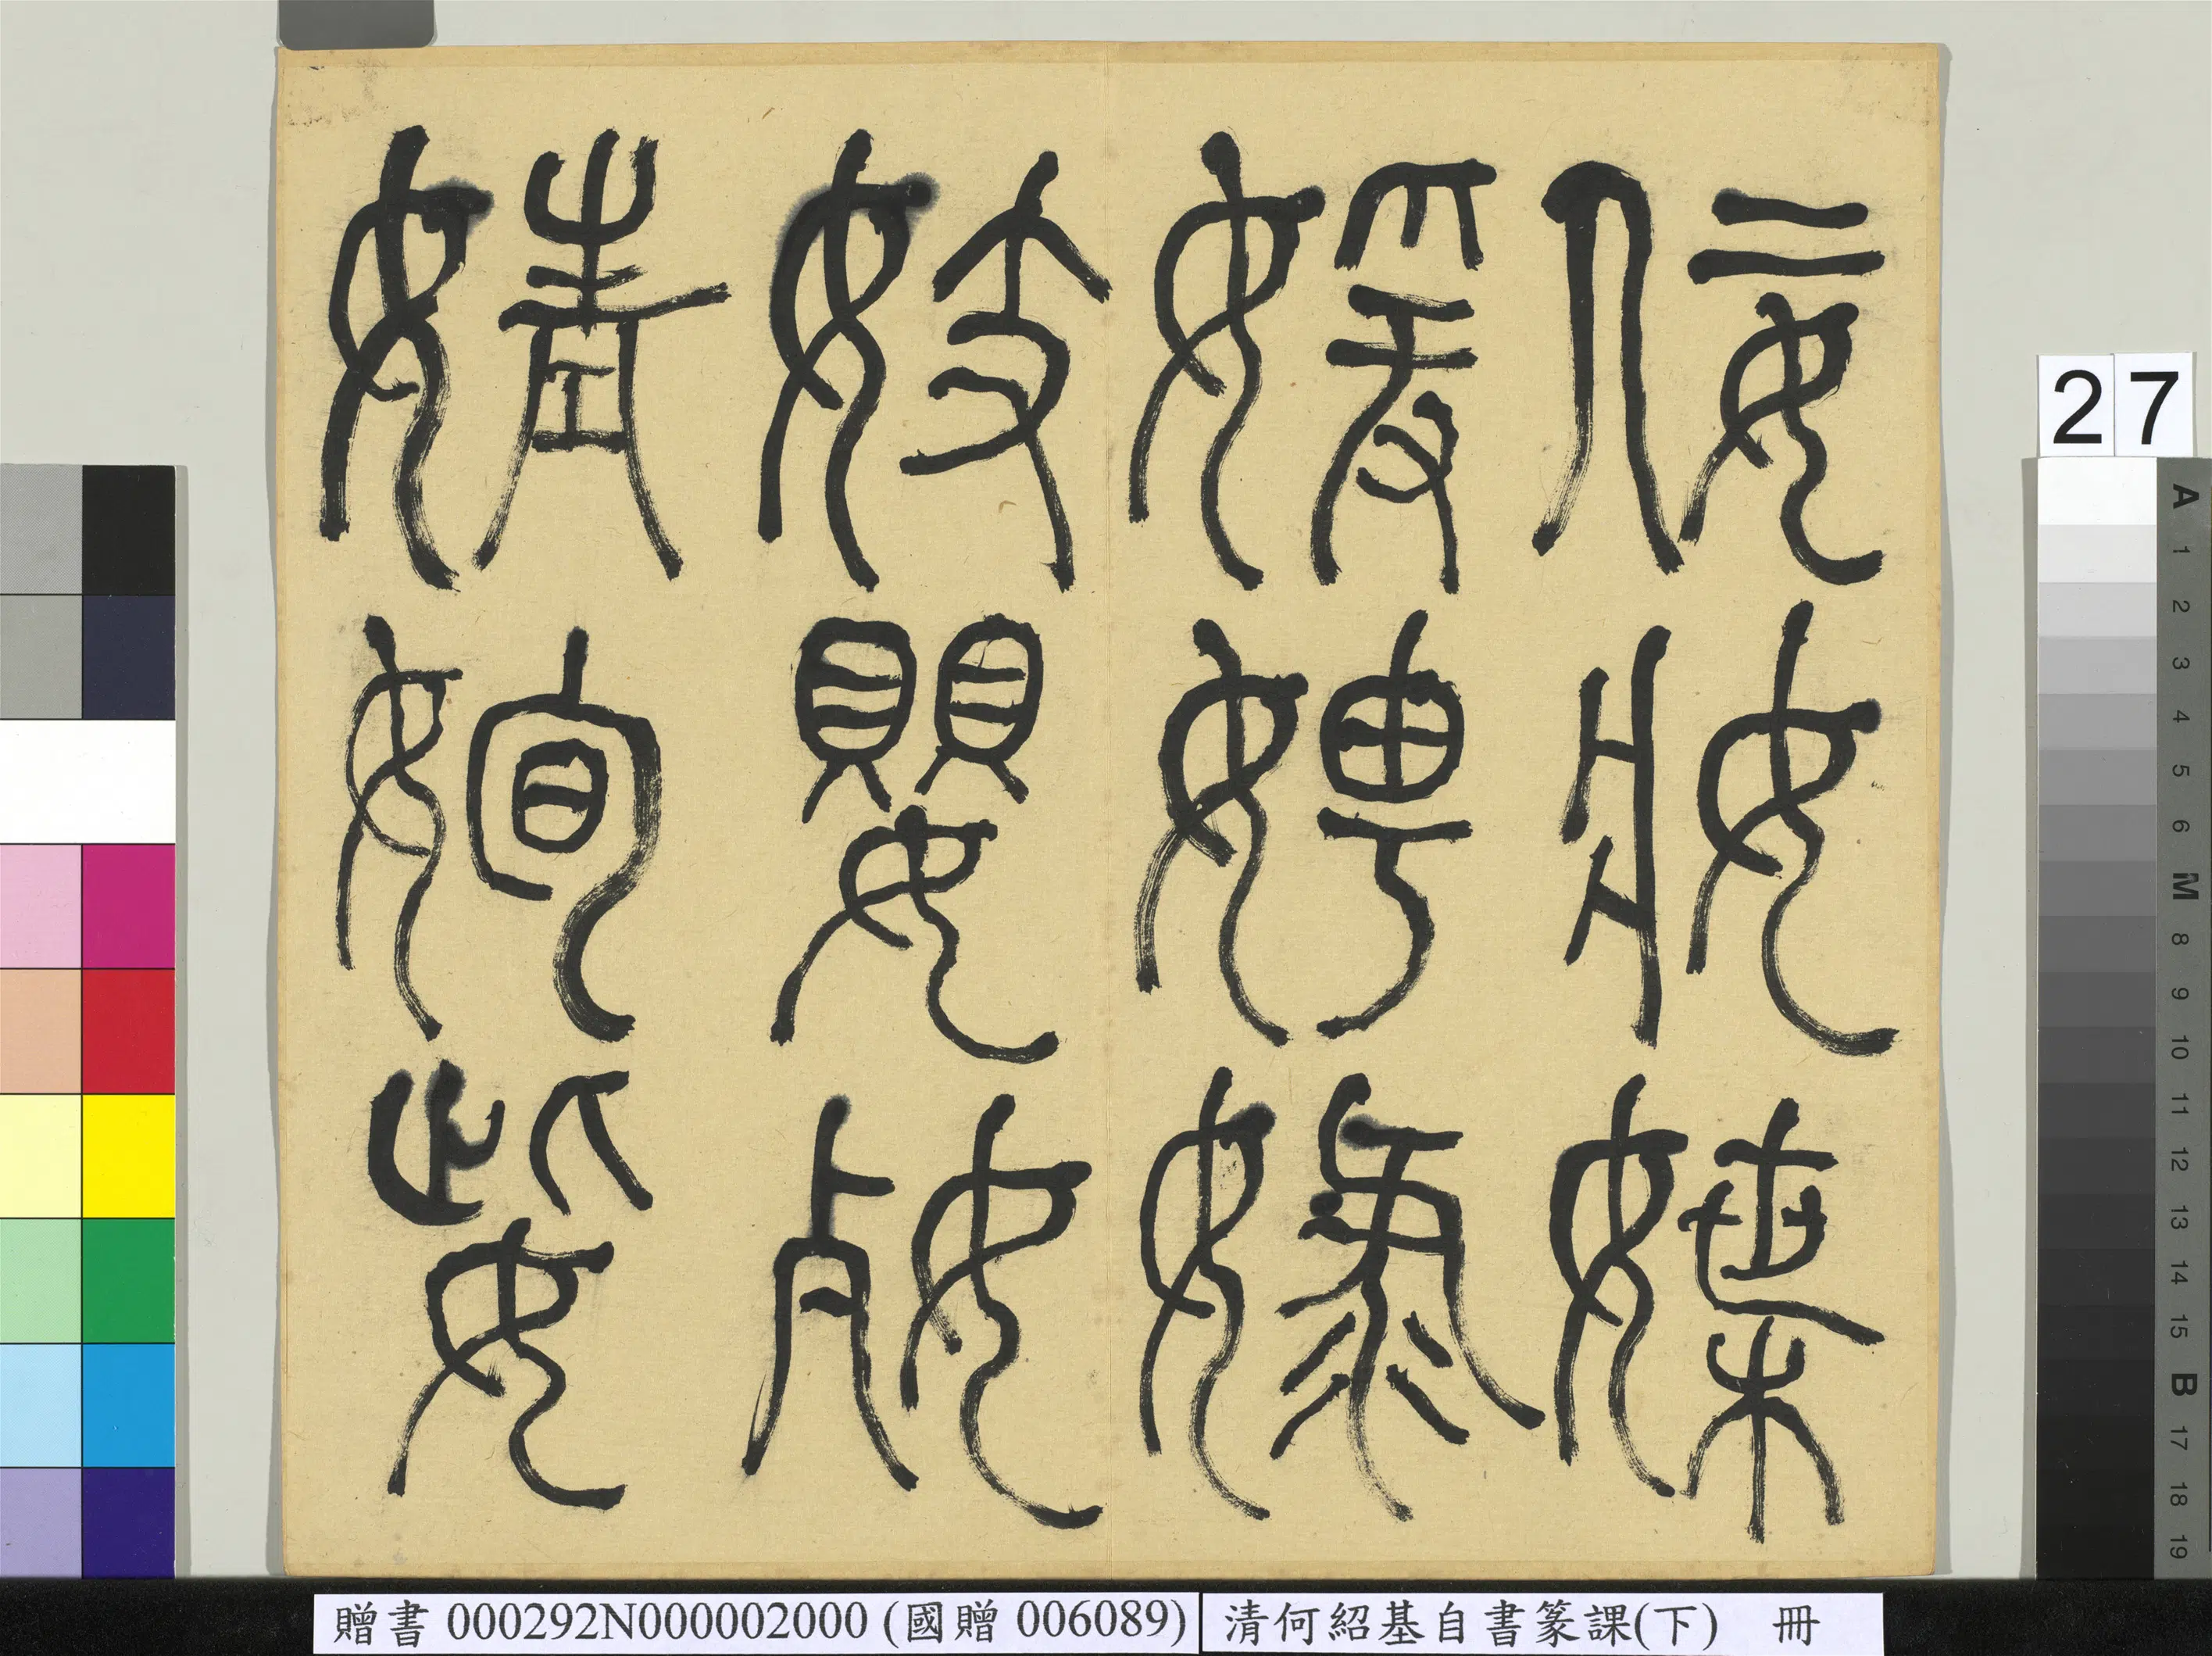 佞妝媟
媛娉娽
妓嬰㚣
婧姰姕
27
A
1
2
3
4
5
6
M
8
9
10
11
12
13
14
15
B
17
18
19
贈書 000292N000002000 (國贈 006089)
清何紹基自書篆課(下) 冊